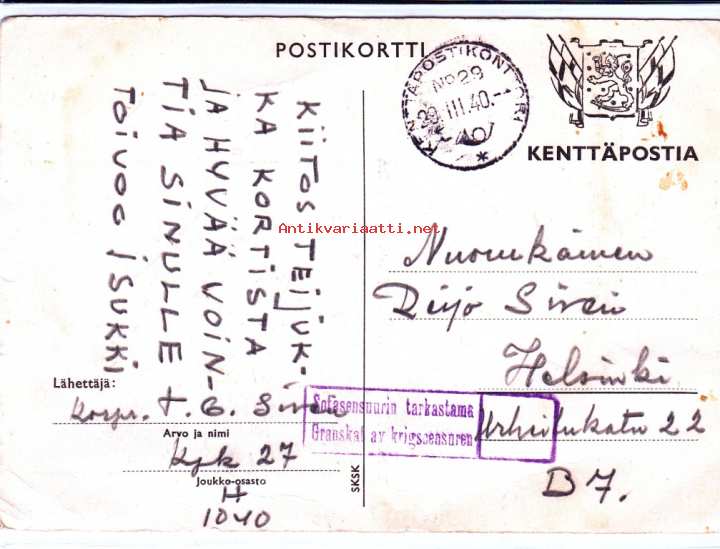 POSTIKORTTI
KENTTÄPOSTIKONTTORI
No 29
29.III.40.-1
KENTTÄPOSTIA
KIITOS TEIJUK-
KA KORTISTA
JA HYVÄÄ VOIN-
TIA SINULLE
TOIVOO ISUKKI
Antikvariaatti.net
Nuorukainen
Reijo Siren
Helsinki
Urheilukatu 22
B 7.
Sotasensuurin tarkastama
Granskat av krigscensuren
Lähettäjä:
Korpr. T. E. Siren
Arvo ja nimi
Kpk 27
Joukko-osasto
H
1040
SKSK